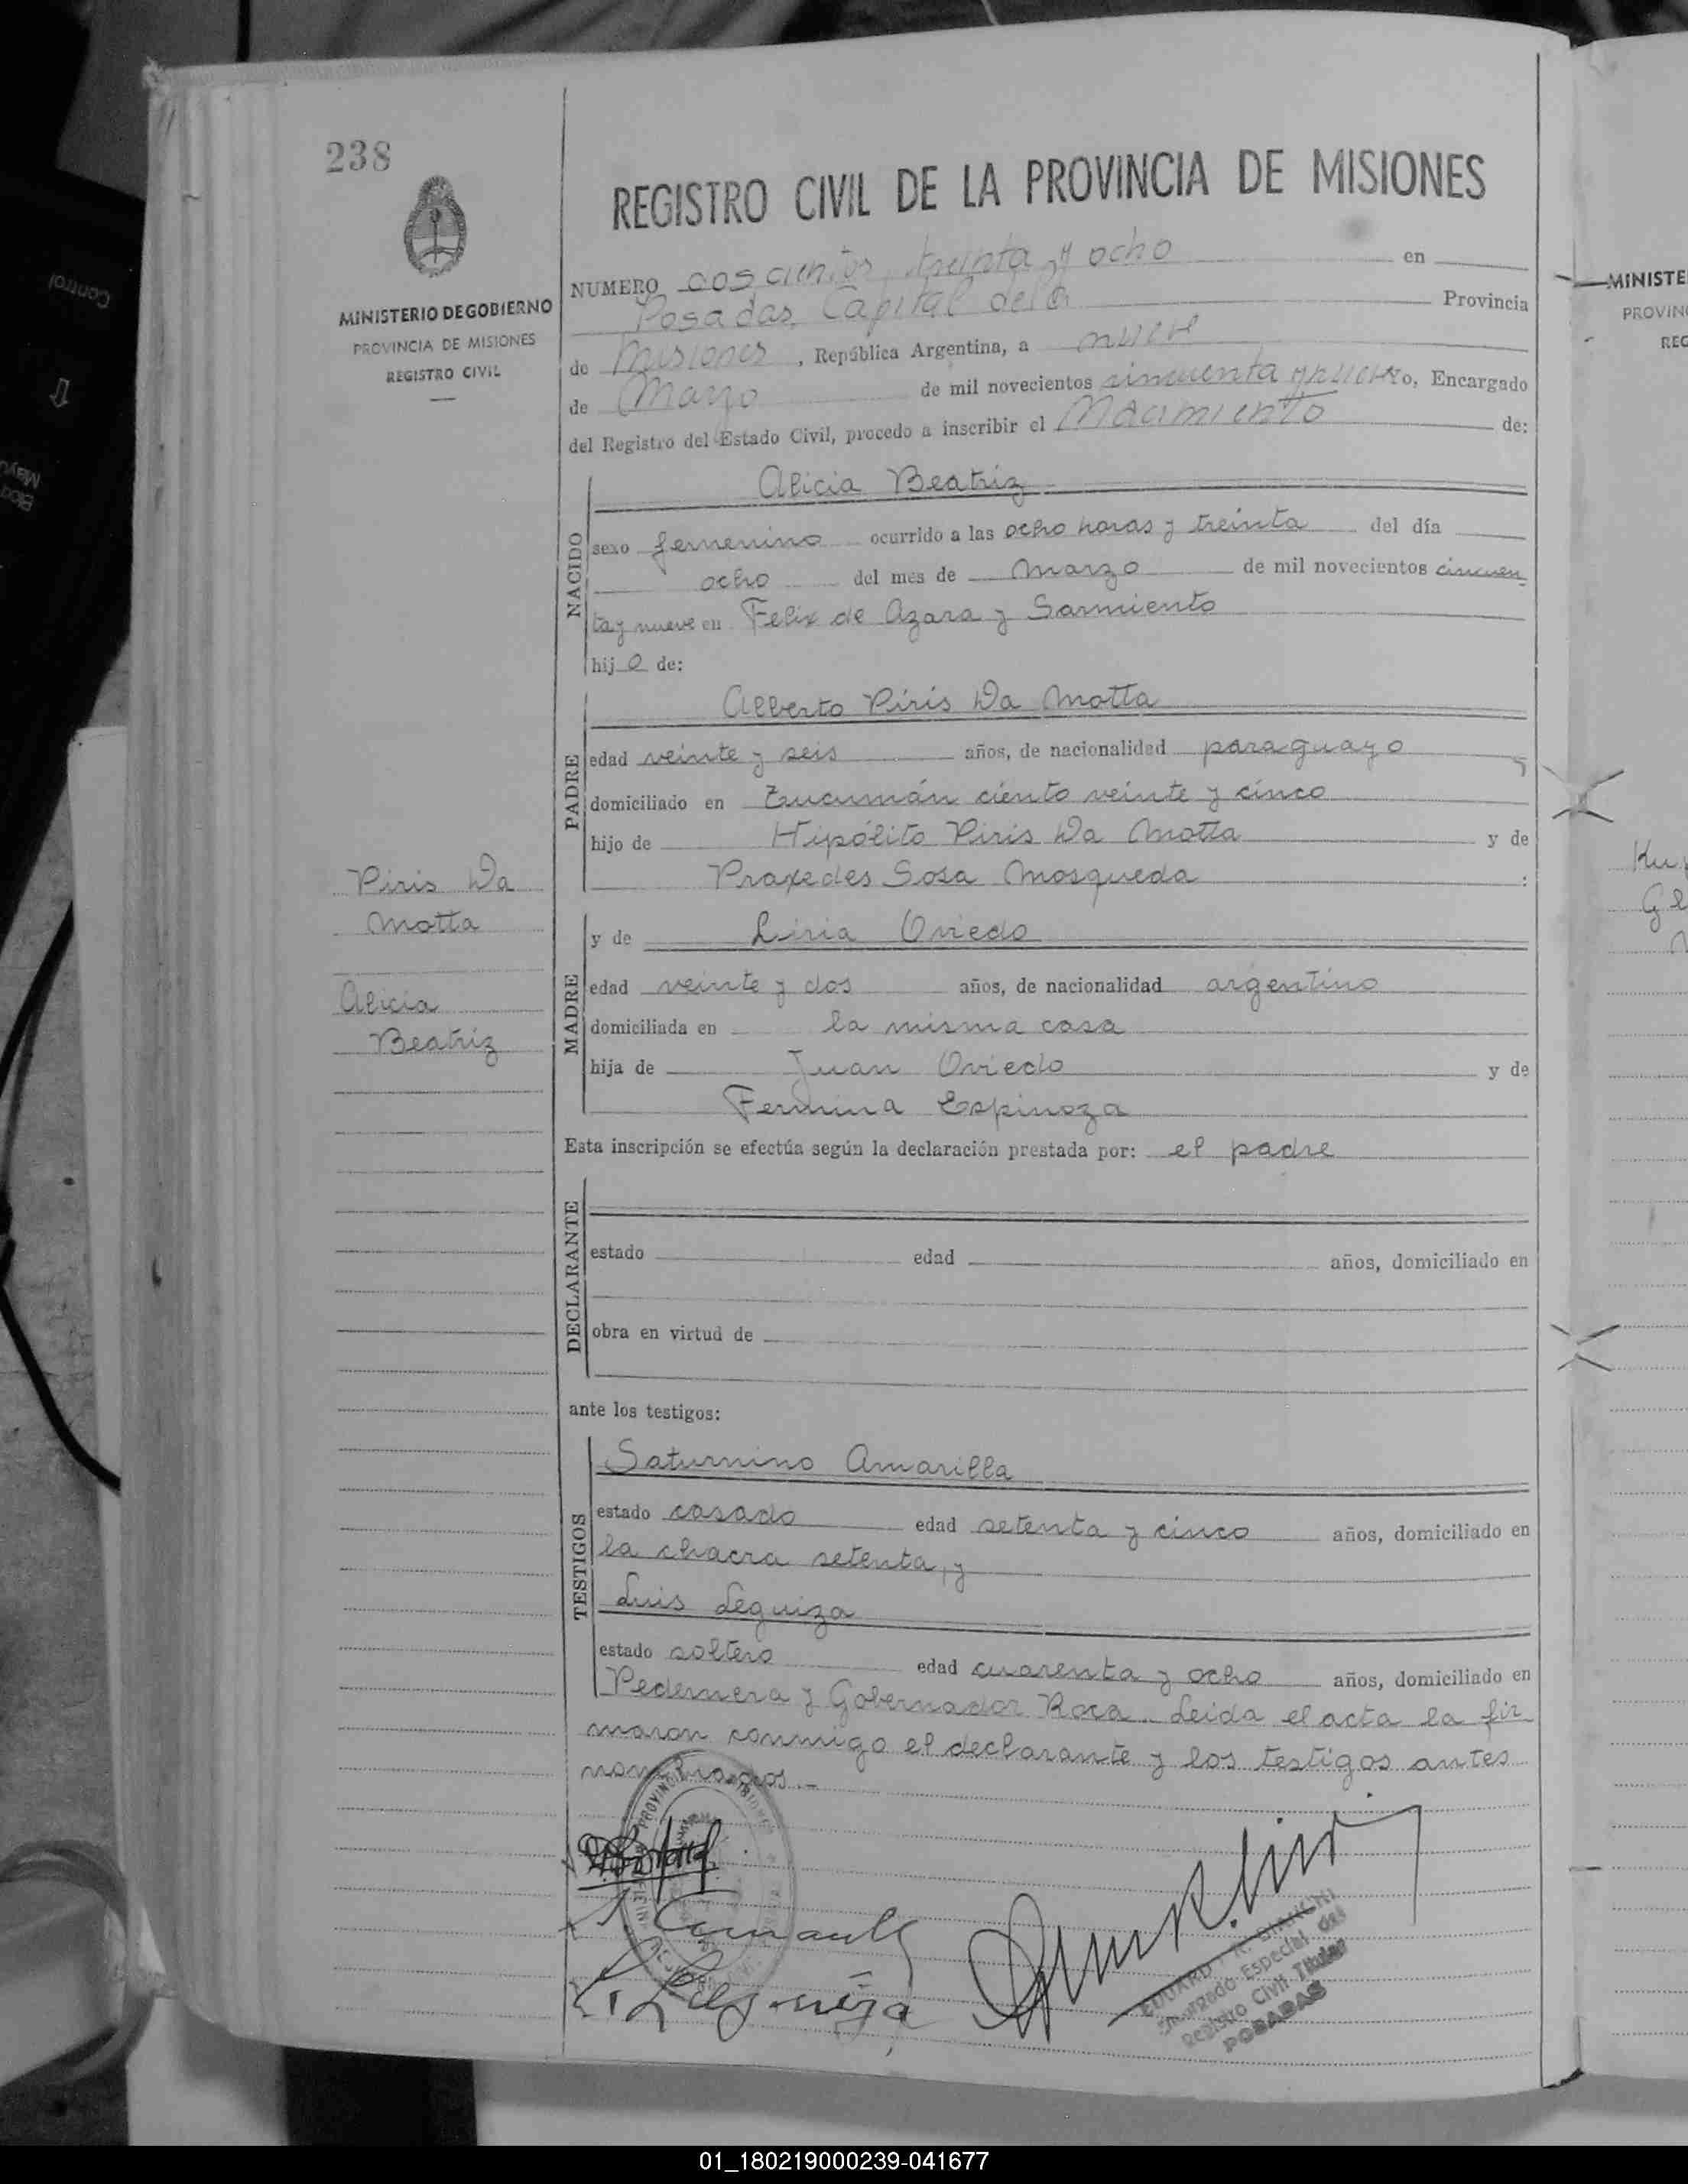 238
REGISTRO CIVIL DE LA PROVINCIA DE MISIONES
MINISTERIO DE GOBIERNO
PROVINCIA DE MISIONES
REGISTRO CIVIL
NUMERO doscientos treinta y ocho en
Posadas, Capital de la Provincia
de Misiones, República Argentina, a nueve
de Marzo de mil novecientos cincuenta y nueve Yo, Encargado
del Registro del Estado Civil, procedo a inscribir el Nacimiento de:
NACIDO
Alicia Beatriz
sexo femenino ocurrido a las ocho horas y treinta del día
ocho del mes de Marzo de mil novecientos cincuen
ta y nueve en Felix de Azara y Sarmiento
hij a de:
PADRE
Alberto Piris Da Motta
edad veinte y seis años, de nacionalidad paraguayo
domiciliado en Tucumán ciento veinte y cinco
hijo de Hipólito Piris Da Motta y de
Praxedes Sosa Mosqueda :
MADRE
y de Liria Oviedo
edad veinte y dos años, de nacionalidad argentino
domiciliada en la misma casa
hija de Juan Oviedo y de
Fermina Espinoza
Piris Da
Motta
Alicia
Beatriz
Esta inscripción se efectúa según la declaración prestada por: el padre
DECLARANTE
estado edad años, domiciliado en
obra en virtud de
ante los testigos:
TESTIGOS
Saturnino Amarilla
estado casado edad setenta y cinco años, domiciliado en
la chacra setenta, y
Luis Leguiza
estado soltero edad cuarenta y ocho años, domiciliado en
Pedernera y Gobernador Roca. Leida el acta la fir
maron conmigo el declarante y los testigos antes
nombrados.-
Encargado Especial del
Registro Civil Titular
POSADAS
MINISTE
PROVIN
REG
Control
01_180219000239-041677